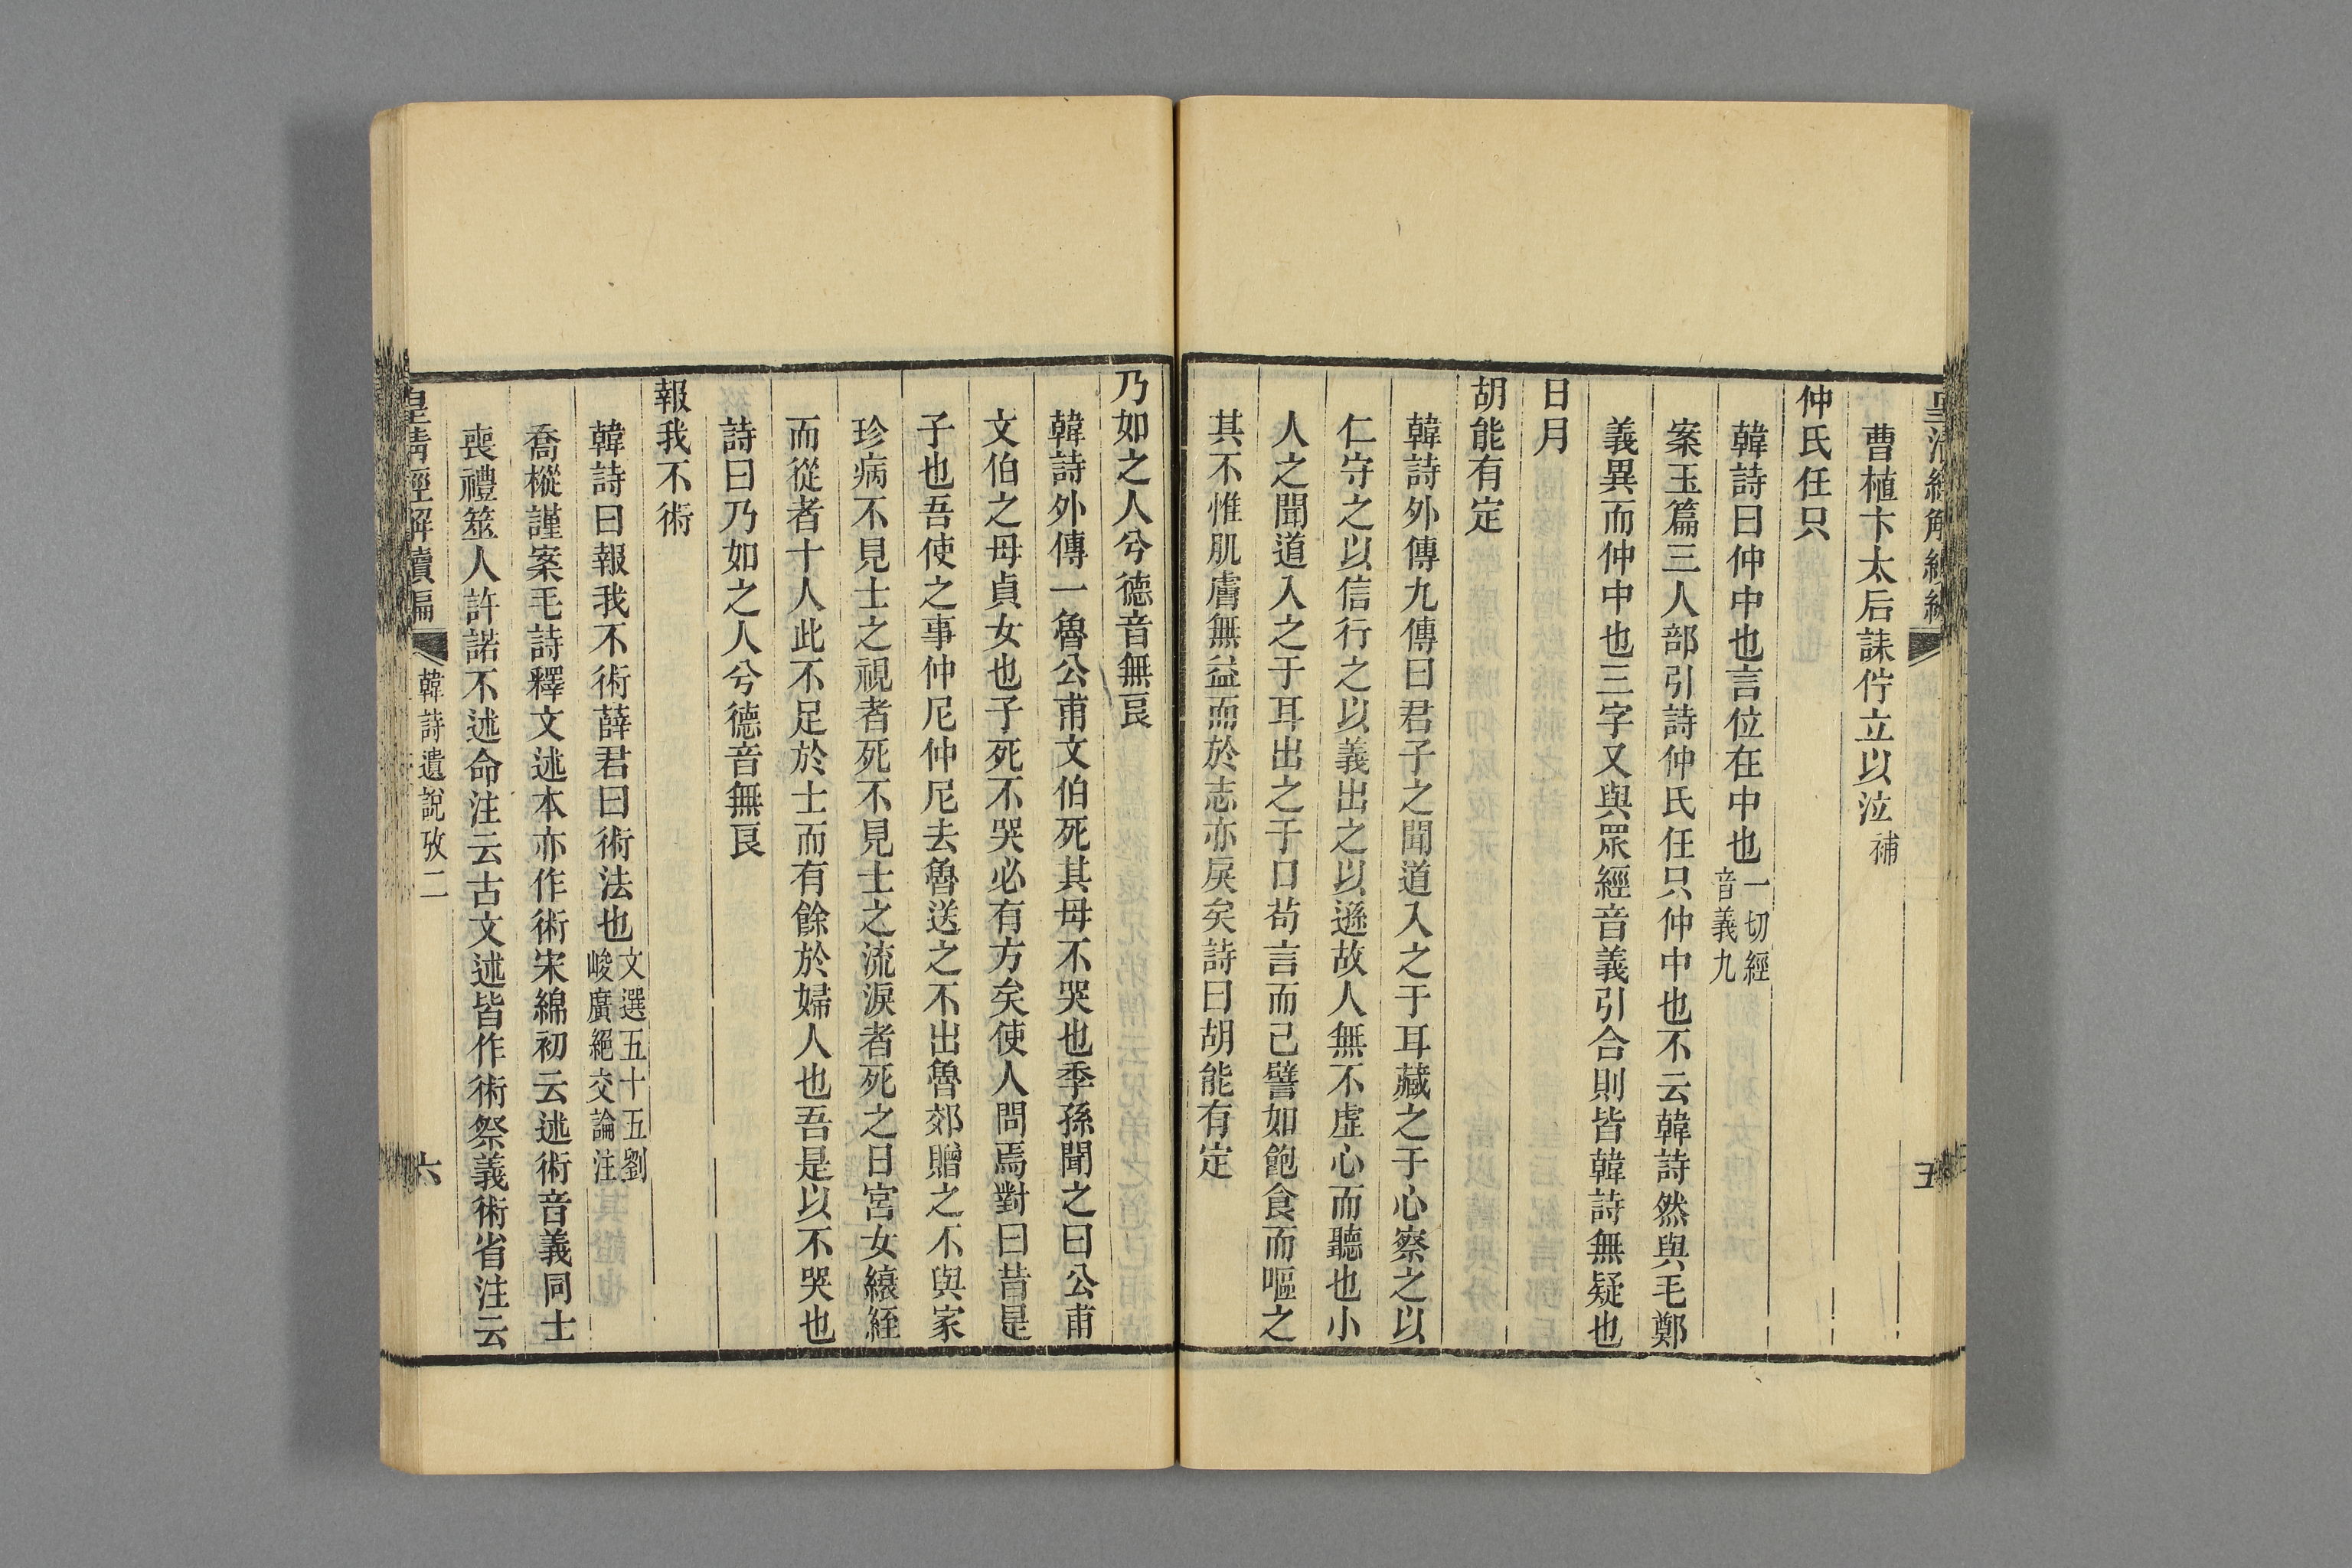 曹植卞太后誄佇立以泣補
仲氏任只
韓詩曰仲中也言位在中也一切經音義九
案玉篇三人部引詩仲氏任只仲中也不云韓詩然與毛鄭
義異而仲中也三字又與眾經音義引合則皆韓詩無疑也
日月
胡能有定
韓詩外傳九傳曰君子之聞道入之于耳藏之于心察之以
仁守之以信行之以義出之以遜故人無不虛心而聽也小
人之聞道入之于耳出之于口苟言而已譬如飽食而嘔之
其不惟肌膚無益而於志亦戾矣詩曰胡能有定
乃如之人兮德音無良
韓詩外傳一魯公甫文伯死其母不哭也季孫聞之曰公甫
文伯之母貞女也子死不哭必有方矣使人問焉對曰昔是
子也吾使之事仲尼仲尼去魯送之不出魯郊贈之不與家
珍病不見士之視者死不見士之流淚者死之日宮女縗絰
而從者十人此不足於士而有餘於婦人也吾是以不哭也
詩曰乃如之人兮德音無良
報我不術
韓詩曰報我不術薛君曰術法也文選五十五劉峻廣絕交論注
喬樅謹案毛詩釋文述本亦作術宋綿初云述術音義同士
喪禮筮人許諾不述命注云古文述皆作術祭義術省注云
皇清經解續編
韓詩遺說攷二
六